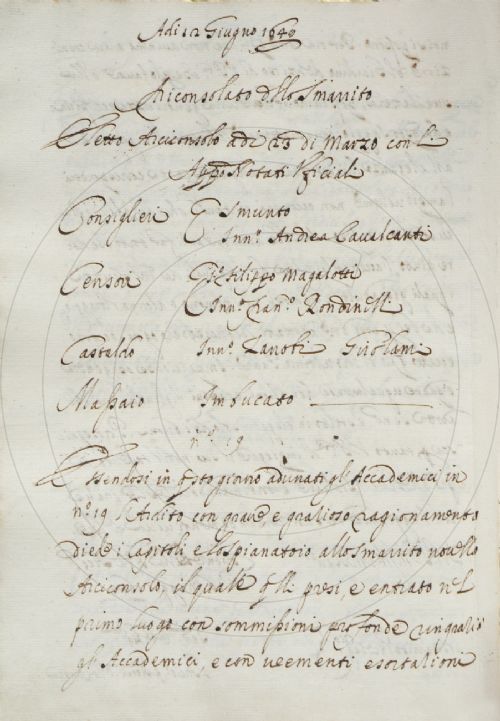 Adi 12 Giugno 1649
Arciconsolato dello Smarrito
Eletto Arciconsolo adi 23 di Marzo con li
Appo Notati Vficiali
Consiglieri Smunto
Inn.º Andrea Cavalcanti
Censori Filippo Magalotti
Inn.º Fran.º Rondinelli
Castaldo Inn.º Zanobi Girolami
Massaio Imbucato
nº 19
Essendosi in qsto giorno adunati gl'Accademici in
nº 19 l'Ardito con grave e ragionamento
diede i Capitoli e lo spianatoio allo Smarrito novello
Arciconsolo, il quale qlli presi, e entrato nel
primo luogo con sommissioni profonde
gl'Accademici, e con veementi esortazioni